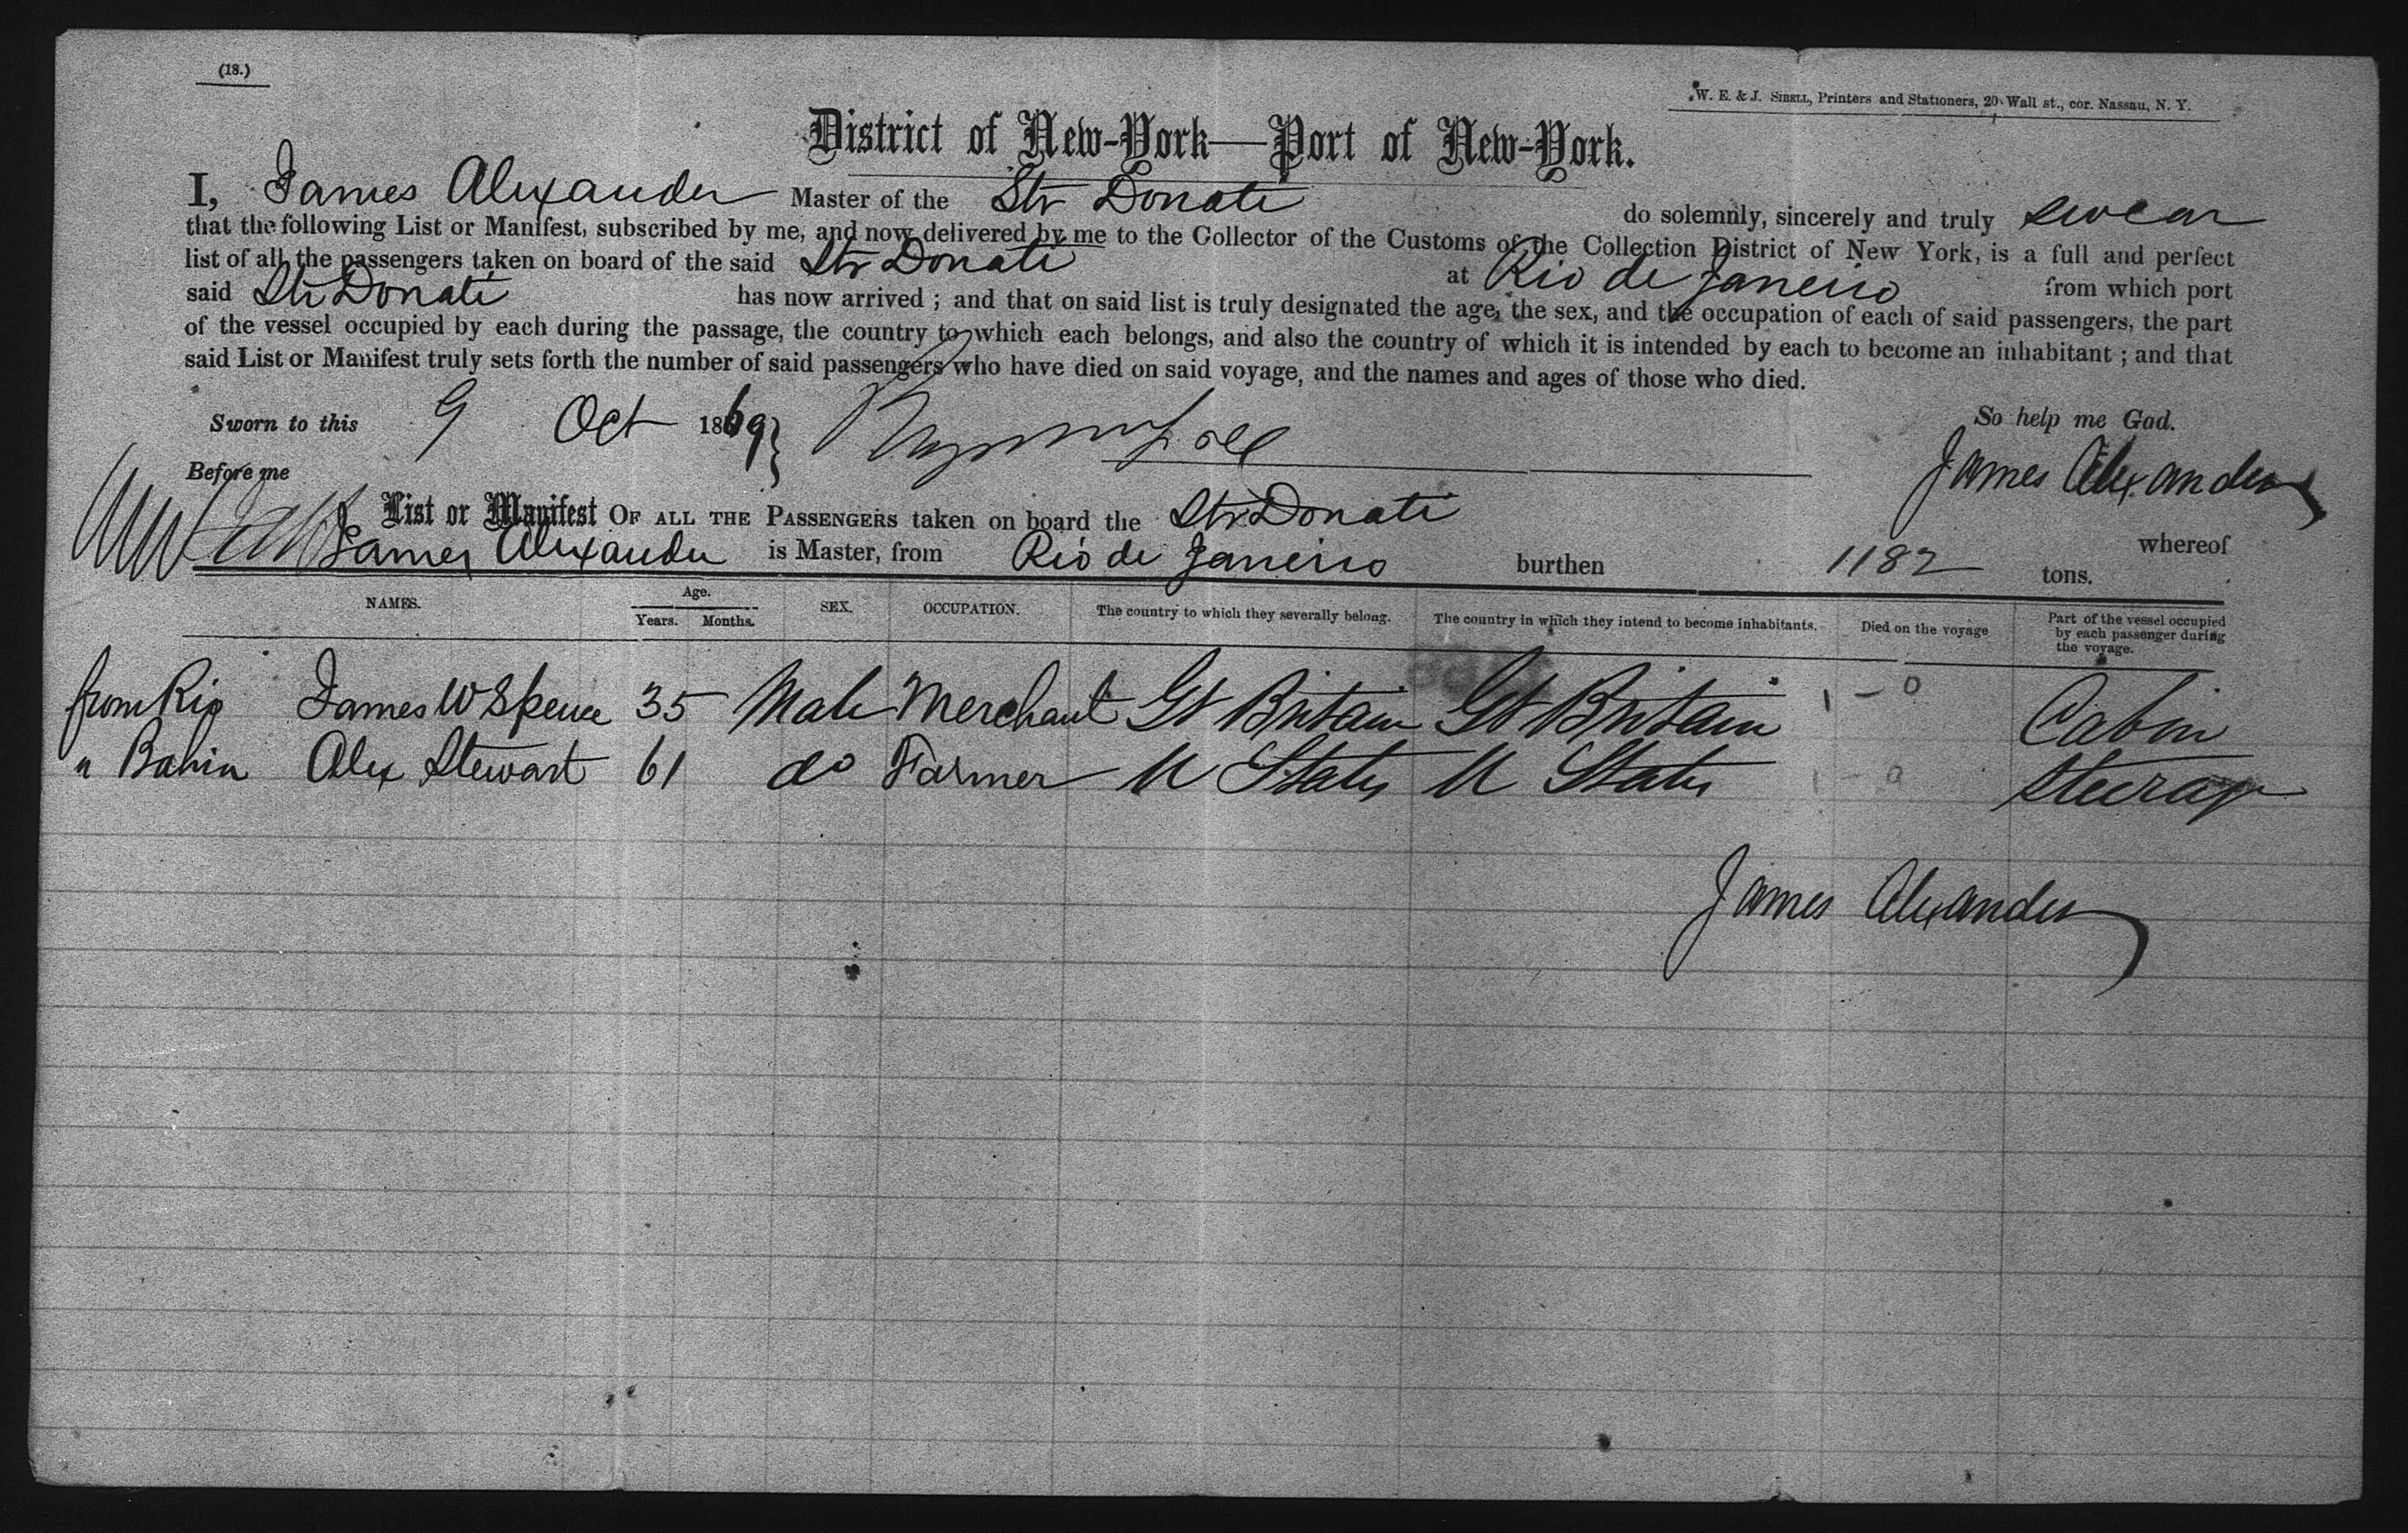 (18.)
W. E. & J. Sibell, Printers and Stationers, 20 Wall st., cor. Nassau, N. Y.
District of New-York—Port of New-York.
I, James Alexander Master of the Str Donati do solemnly, sincerely and truly swear
that the following List or Manifest, subscribed by me, and now delivered by me to the Collector of the Customs of the Collection District of New York, is a full and perfect
list of all the passengers taken on board of the said Str Donati at Rio de Janeiro from which port
said Str Donati has now arrived ; and that on said list is truly designated the age, the sex, and the occupation of each of said passengers, the part
of the vessel occupied by each during the passage, the country to which each belongs, and also the country of which it is intended by each to become an inhabitant ; and that
said List or Manifest truly sets forth the number of said passengers who have died on said voyage, and the names and ages of those who died.
Sworn to this 9 Oct 1869
So help me God.
Before me
James Alexander
List or Manifest OF ALL THE PASSENGERS taken on board the Str Donati whereof
James Alexander is Master, from Rio de Janeiro burthen 1182 tons.
NAMES. Age. Years. Months. SEX. OCCUPATION. The country to which they severally belong. The country in which they intend to become inhabitants. Died on the voyage Part of the vessel occupied by each passenger during the voyage.
from Rio James W Spence 35 Male Merchant Gt Britain Gt Britain 1 - 0 Cabin
" Bahia Alex Stewart 61 do Farmer U States U States 1 - 0 Steerage
James Alexander